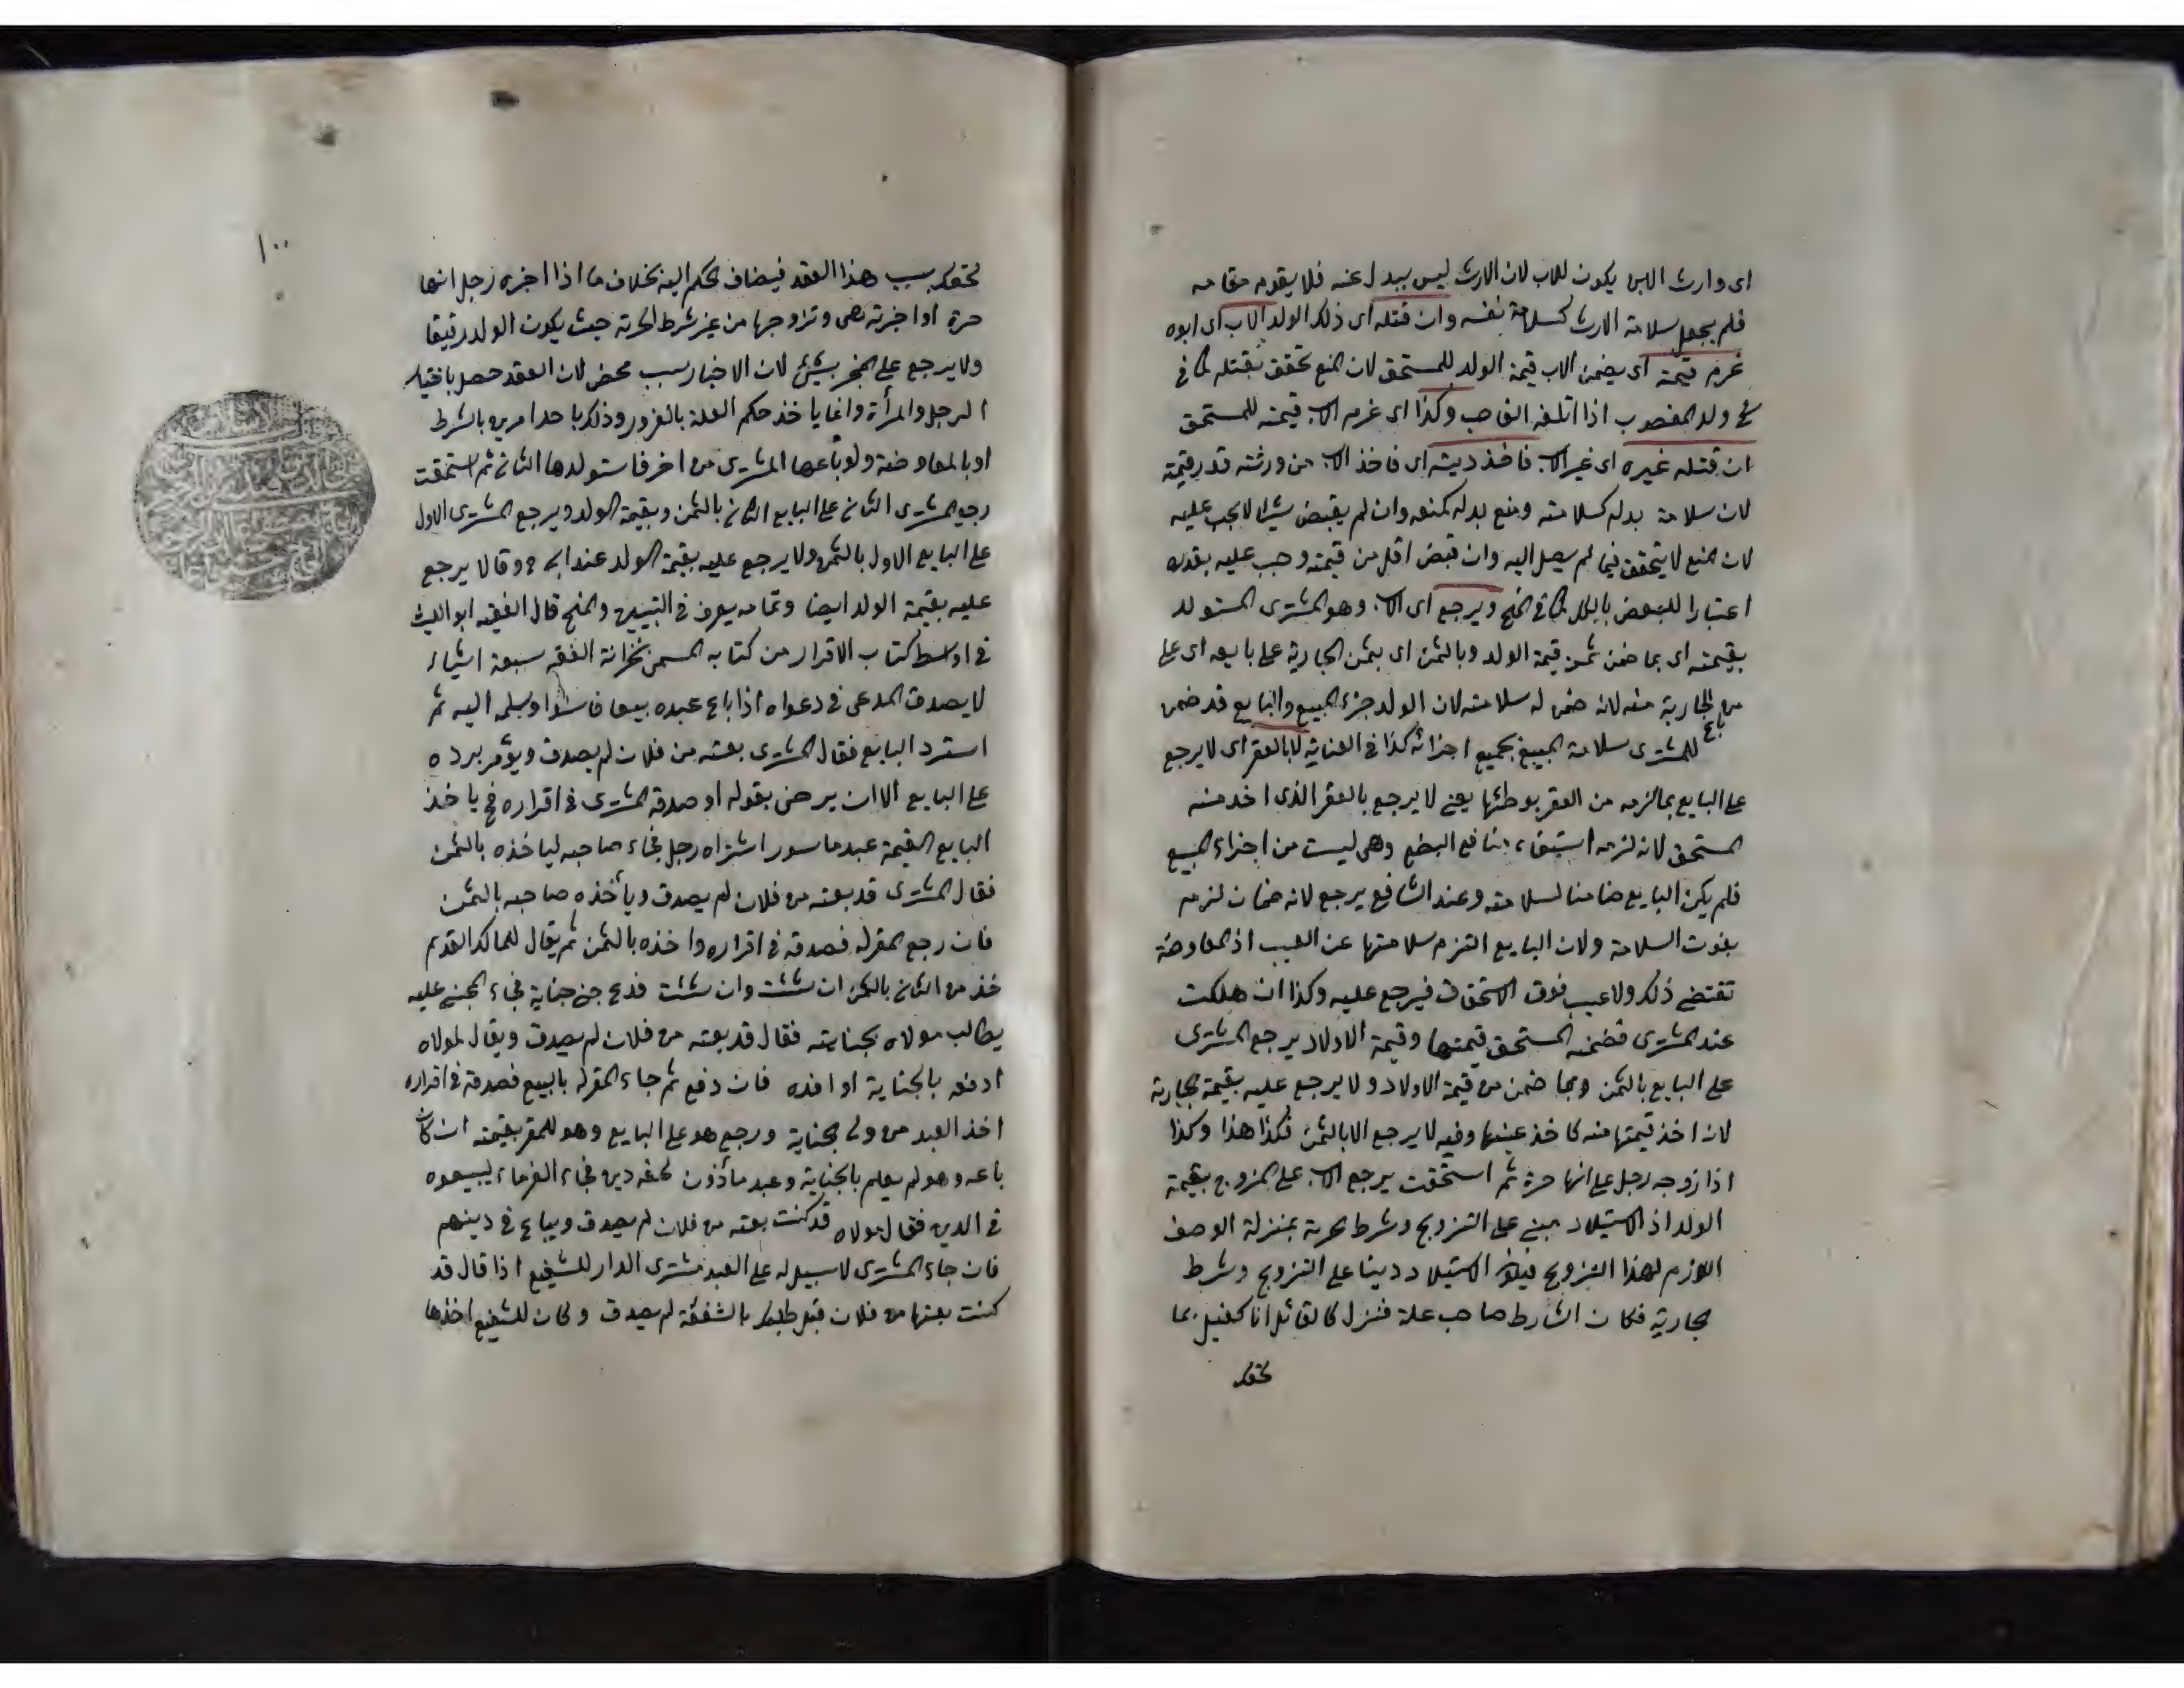 اى وارث الابن يكون للاب لان الارث ليس ببدل عنه فلا يقوم مقامه
فلم يجعل سلامة الارث كسلامة نفسه وان قتله اى ذلك الولد الاب اى ابوه
غرم قيمته اى يضمن الاب قيمة الولد للمستحق لان المنع تحقق بقتله كما فى
ولد المغصوب اذا اتلفه الغاصب وكذا اى غرم الاب قيمته للمستحق
ان قتله غيره اى غير الاب فاخذ ديته اى فاخذ الاب من ورثته قدر قيمته
لان سلامة بدله كسلامته ومنع بدله كمنعه وان لم يقبض شيئا لا يجب عليه
لان المنع لا يتحقق فيما لم يصل اليه وان قبض اقل من قيمته وجب عليه بقدره
اعتبارا للبعض بالكل كما فى المنح ويرجع اى الاب وهو المشترى المستولد
بقيمته اى بما ضمن من قيمة الولد وبالثمن اى بثمن الجارية على بايعه اى على
من باع الجارية منه لانه ضمن له سلامته لان الولد جزء المبيع والبايع قد ضمن
للمشترى سلامة المبيع بجميع اجزائه كذا فى العناية لا بالعقر اى لا يرجع
على البايع بما لزمه من العقر بوطئها يعنى لا يرجع بالعقر الذى اخد منه
المستحق لانه لزمه استيفاء منافع البضع وهى ليست من اجزاء المبيع
فلم يكن البايع ضامنا لسلامته وعند الشافعى يرجع لانه ضمان لزمه
بفوت السلامة ولان البايع التزم سلامتها عن العيب اذ المعاوضة
تقتضى ذلك ولا عيب فوق الاستحقاق فيرجع عليه وكذا ان هلكت
عند المشترى فضمنه المستحق قيمتها وقيمة الاولاد يرجع المشترى
على البايع بالثمن وبما ضمن من قيمة الاولاد ولا يرجع عليه بقيمة الجارية
لان اخذ قيمتها منه كاخذ عينها وفيه لا يرجع الا بالثمن فكذا هذا وكذا
اذا زوجه رجل على انها حرة ثم استحقت يرجع الاب على المزوج بقيمة
الولد اذ الاستيلاد مبنى على التزويج وشرط الحرية بمنزلة الوصف
اللازم لهذا التزويج الاستيلاد على التزويج وشرط
الحرية فكان الشارط صاحب علة فنزل كالقائل انا كفيل بما
لحقك
١٠٠
لحقك بسبب هذا العقد فيضاف الحكم اليه بخلاف ما اذا اخبره رجل انها
حرة او اخبرته هى وتزوجها من غير شرط الحرية حيث يكون الولد رقيقا
ولا يرجع على المخبر بشئ لان الاخبار سبب محض لان العقد حصل باختيار
الرجل والمرأة وانما ياخذ حكم العلة بالغرور وذلك باحد امرين بالشرط
او بالمعاوضة ولو باعها المشترى من اخر فاستولدها الثانى ثم استحقت
رجع المشترى الثانى على البايع الثانى بالثمن وبقيمة الولد ويرجع المشترى الاول
على البايع الاول بالثمن ولا يرجع عليه بقيمة الولد عند ابى ح وقالا يرجع
عليه بقيمة الولد ايضا وتمامه يعرف فى التبيين والمنح قال الفقيه ابو الليث
فى اواسط كتاب الاقرار من كتابه المسمى بخزانة الفقه سبعة اشياء
لا يصدق المدعى فى دعواه اذا باع عبده بيعا فاسدا وسلمه اليه ثم
استرد البايع فقال المشترى بعته من فلان لم يصدق ويؤمر برده
على البايع الا ان يرضى بقوله او صدقه المشترى فى اقراره فح ياخذ
البايع القيمة عبد ماسور اشتراه رجل فجاء صاحبه لياخذه بالثمن
فقال المشترى قد بعته من فلان لم يصدق ويأخذه صاحبه بالثمن
فان رجع المقر له فصدقه فى اقراره واخذه بالثمن ثم يقال للمالك القديم
خذ من الثانى بالثمن ان شئت وان شئت فدع جنى جناية فجاء المجنى عليه
يطالب مولاه بجنايته فقال قد بعته من فلان لم يصدق ويقال لمولاه
ادفعه بالجناية او افده فان دفع ثم جاء المقر له بالبيع فصدقه فى اقراره
اخذ العبد من ولى الجناية ورجع هو على البايع وهو المقر بقيمته ان كان
باعه وهو لم يعلم بالجناية وعبد مأذون لحقه دين فجاء الغرماء ليبيعوه
فى الدين فقال مولاه قد كنت بعته من فلان لم يصدق ويباع فى دينهم
فان جاء المشترى لا سبيل له على العبد مشترى الدار للشفيع اذا قال قد
كنت بعتها من فلان قبل طلبك بالشفعة لم يصدق وكان للشفيع اخذها